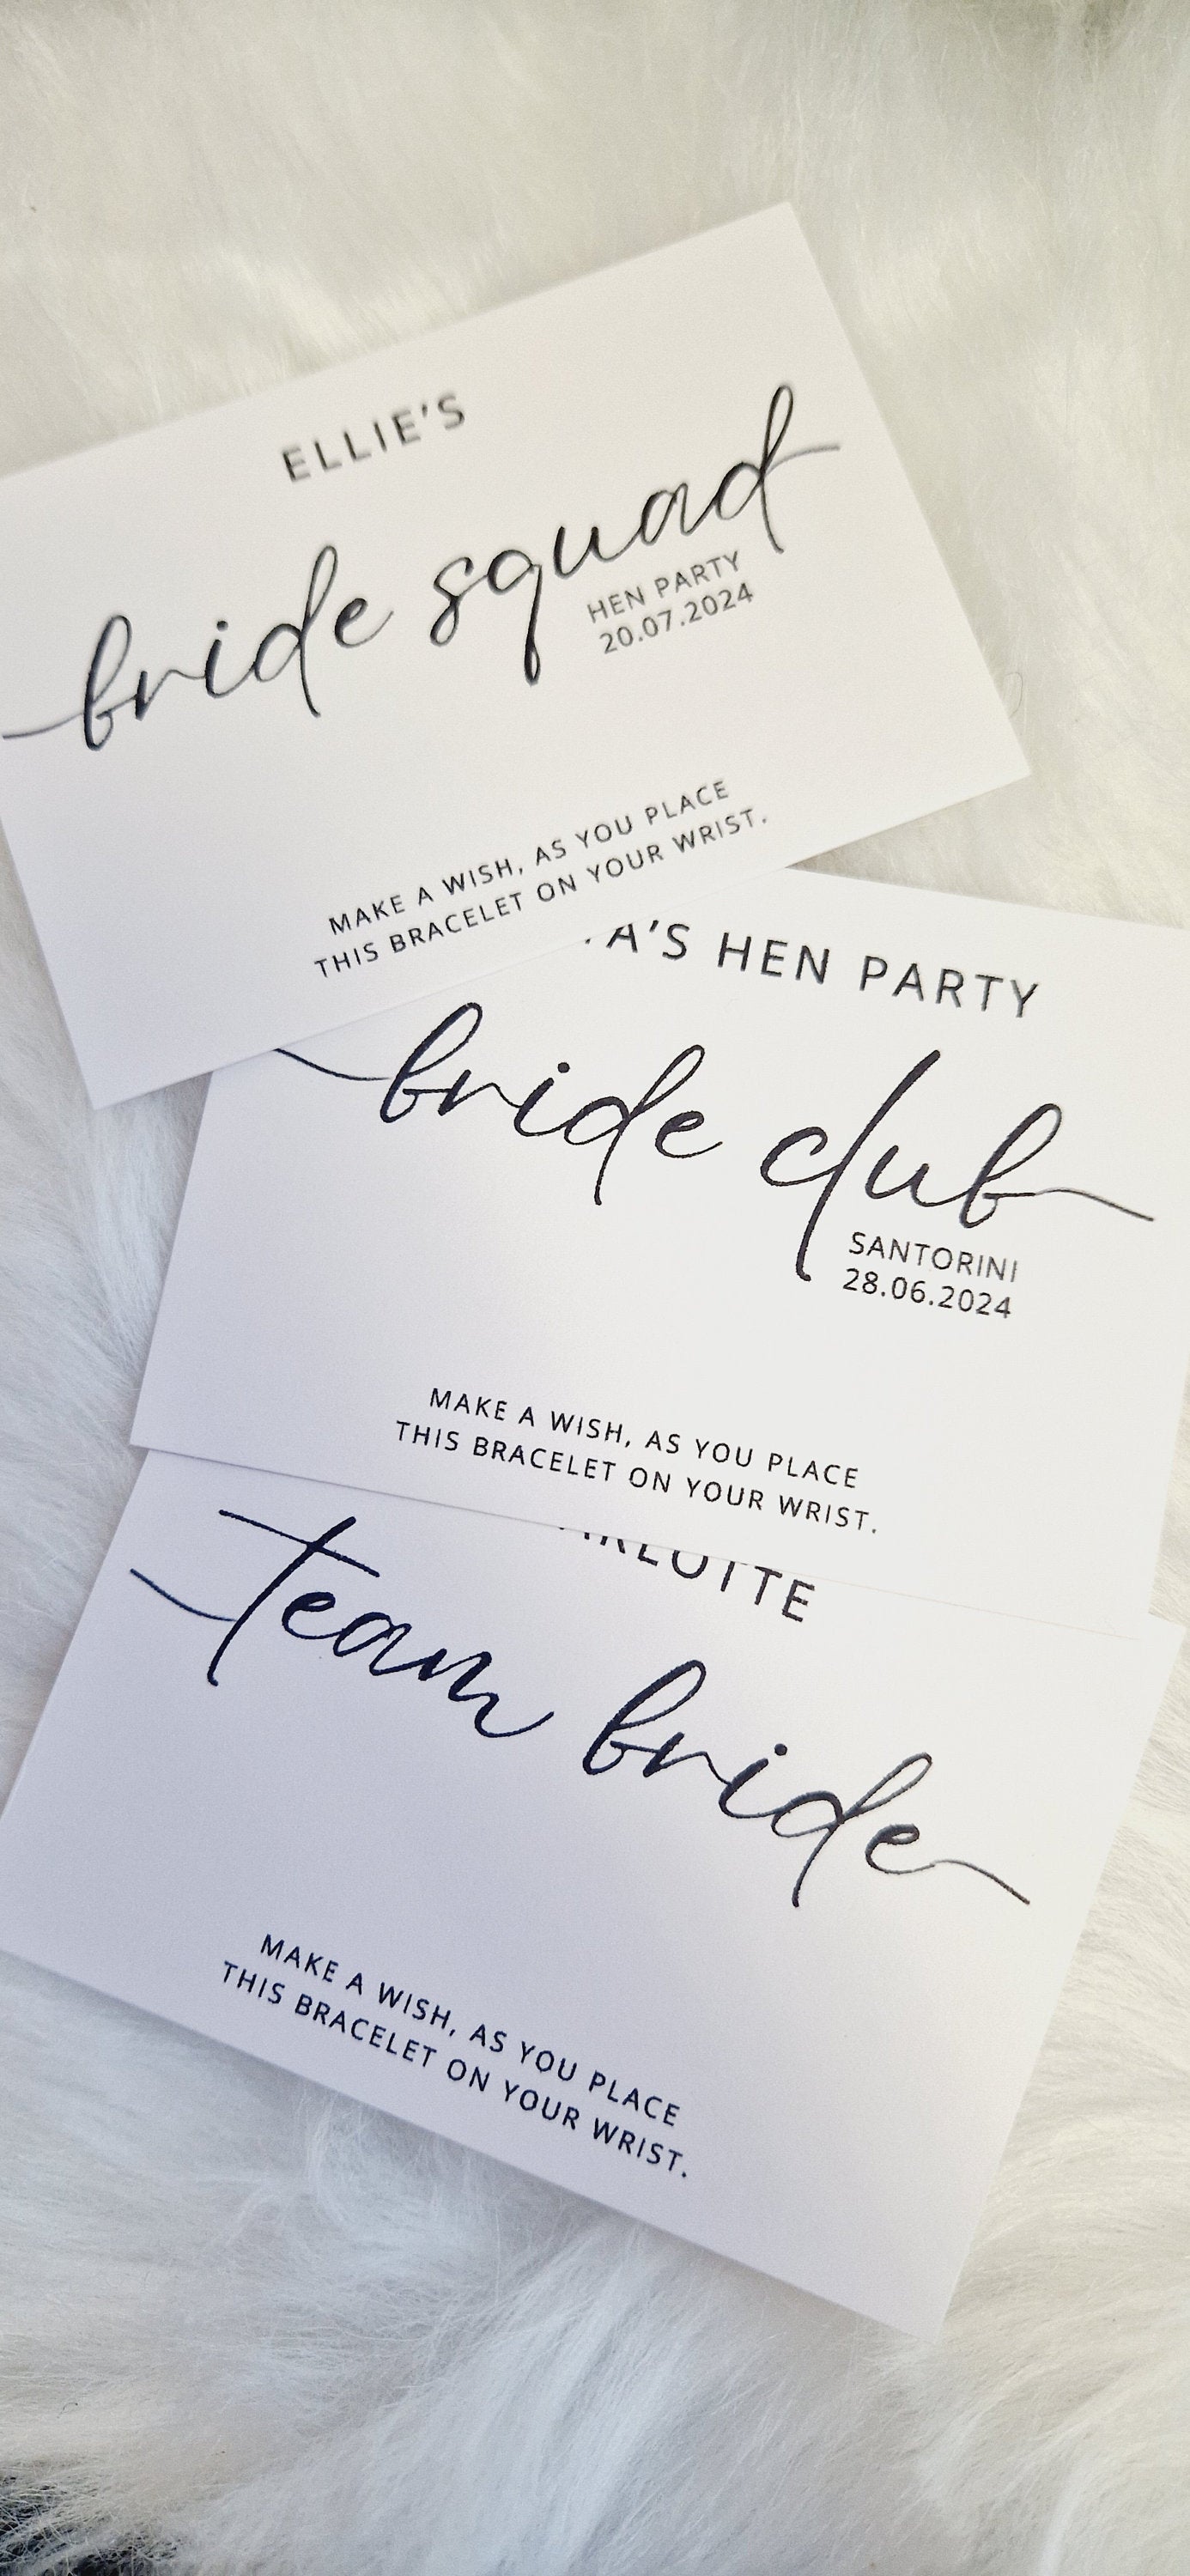 ELLIE'S
bride squad
HEN PARTY
20.07.2024
MAKE A WISH, AS YOU PLACE
THIS BRACELET ON YOUR WRIST.
HEN PARTY
bride club
SANTORINI
28.06.2024
MAKE A WISH, AS YOU PLACE
THIS BRACELET ON YOUR WRIST.
team bride
MAKE A WISH, AS YOU PLACE
THIS BRACELET ON YOUR WRIST.